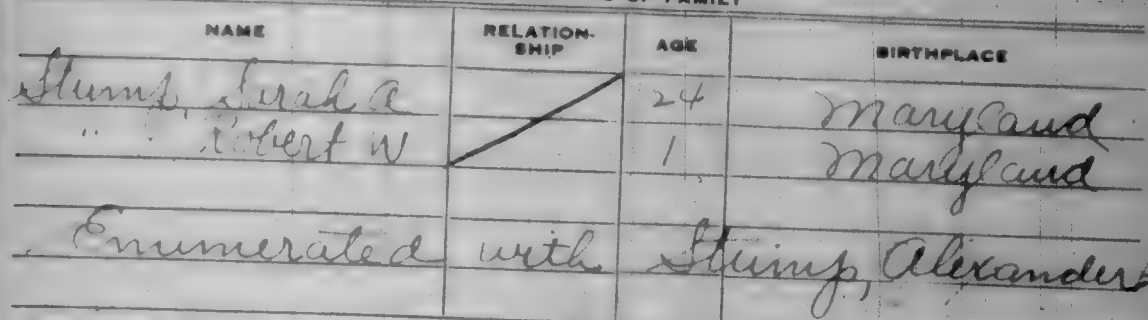 OF FAMILY
NAME RELATION-SHIP AGE BIRTHPLACE
Stump, Sarah A 24 Maryland
" Robert W 1 Maryland
Enumerated with Stump, Alexander